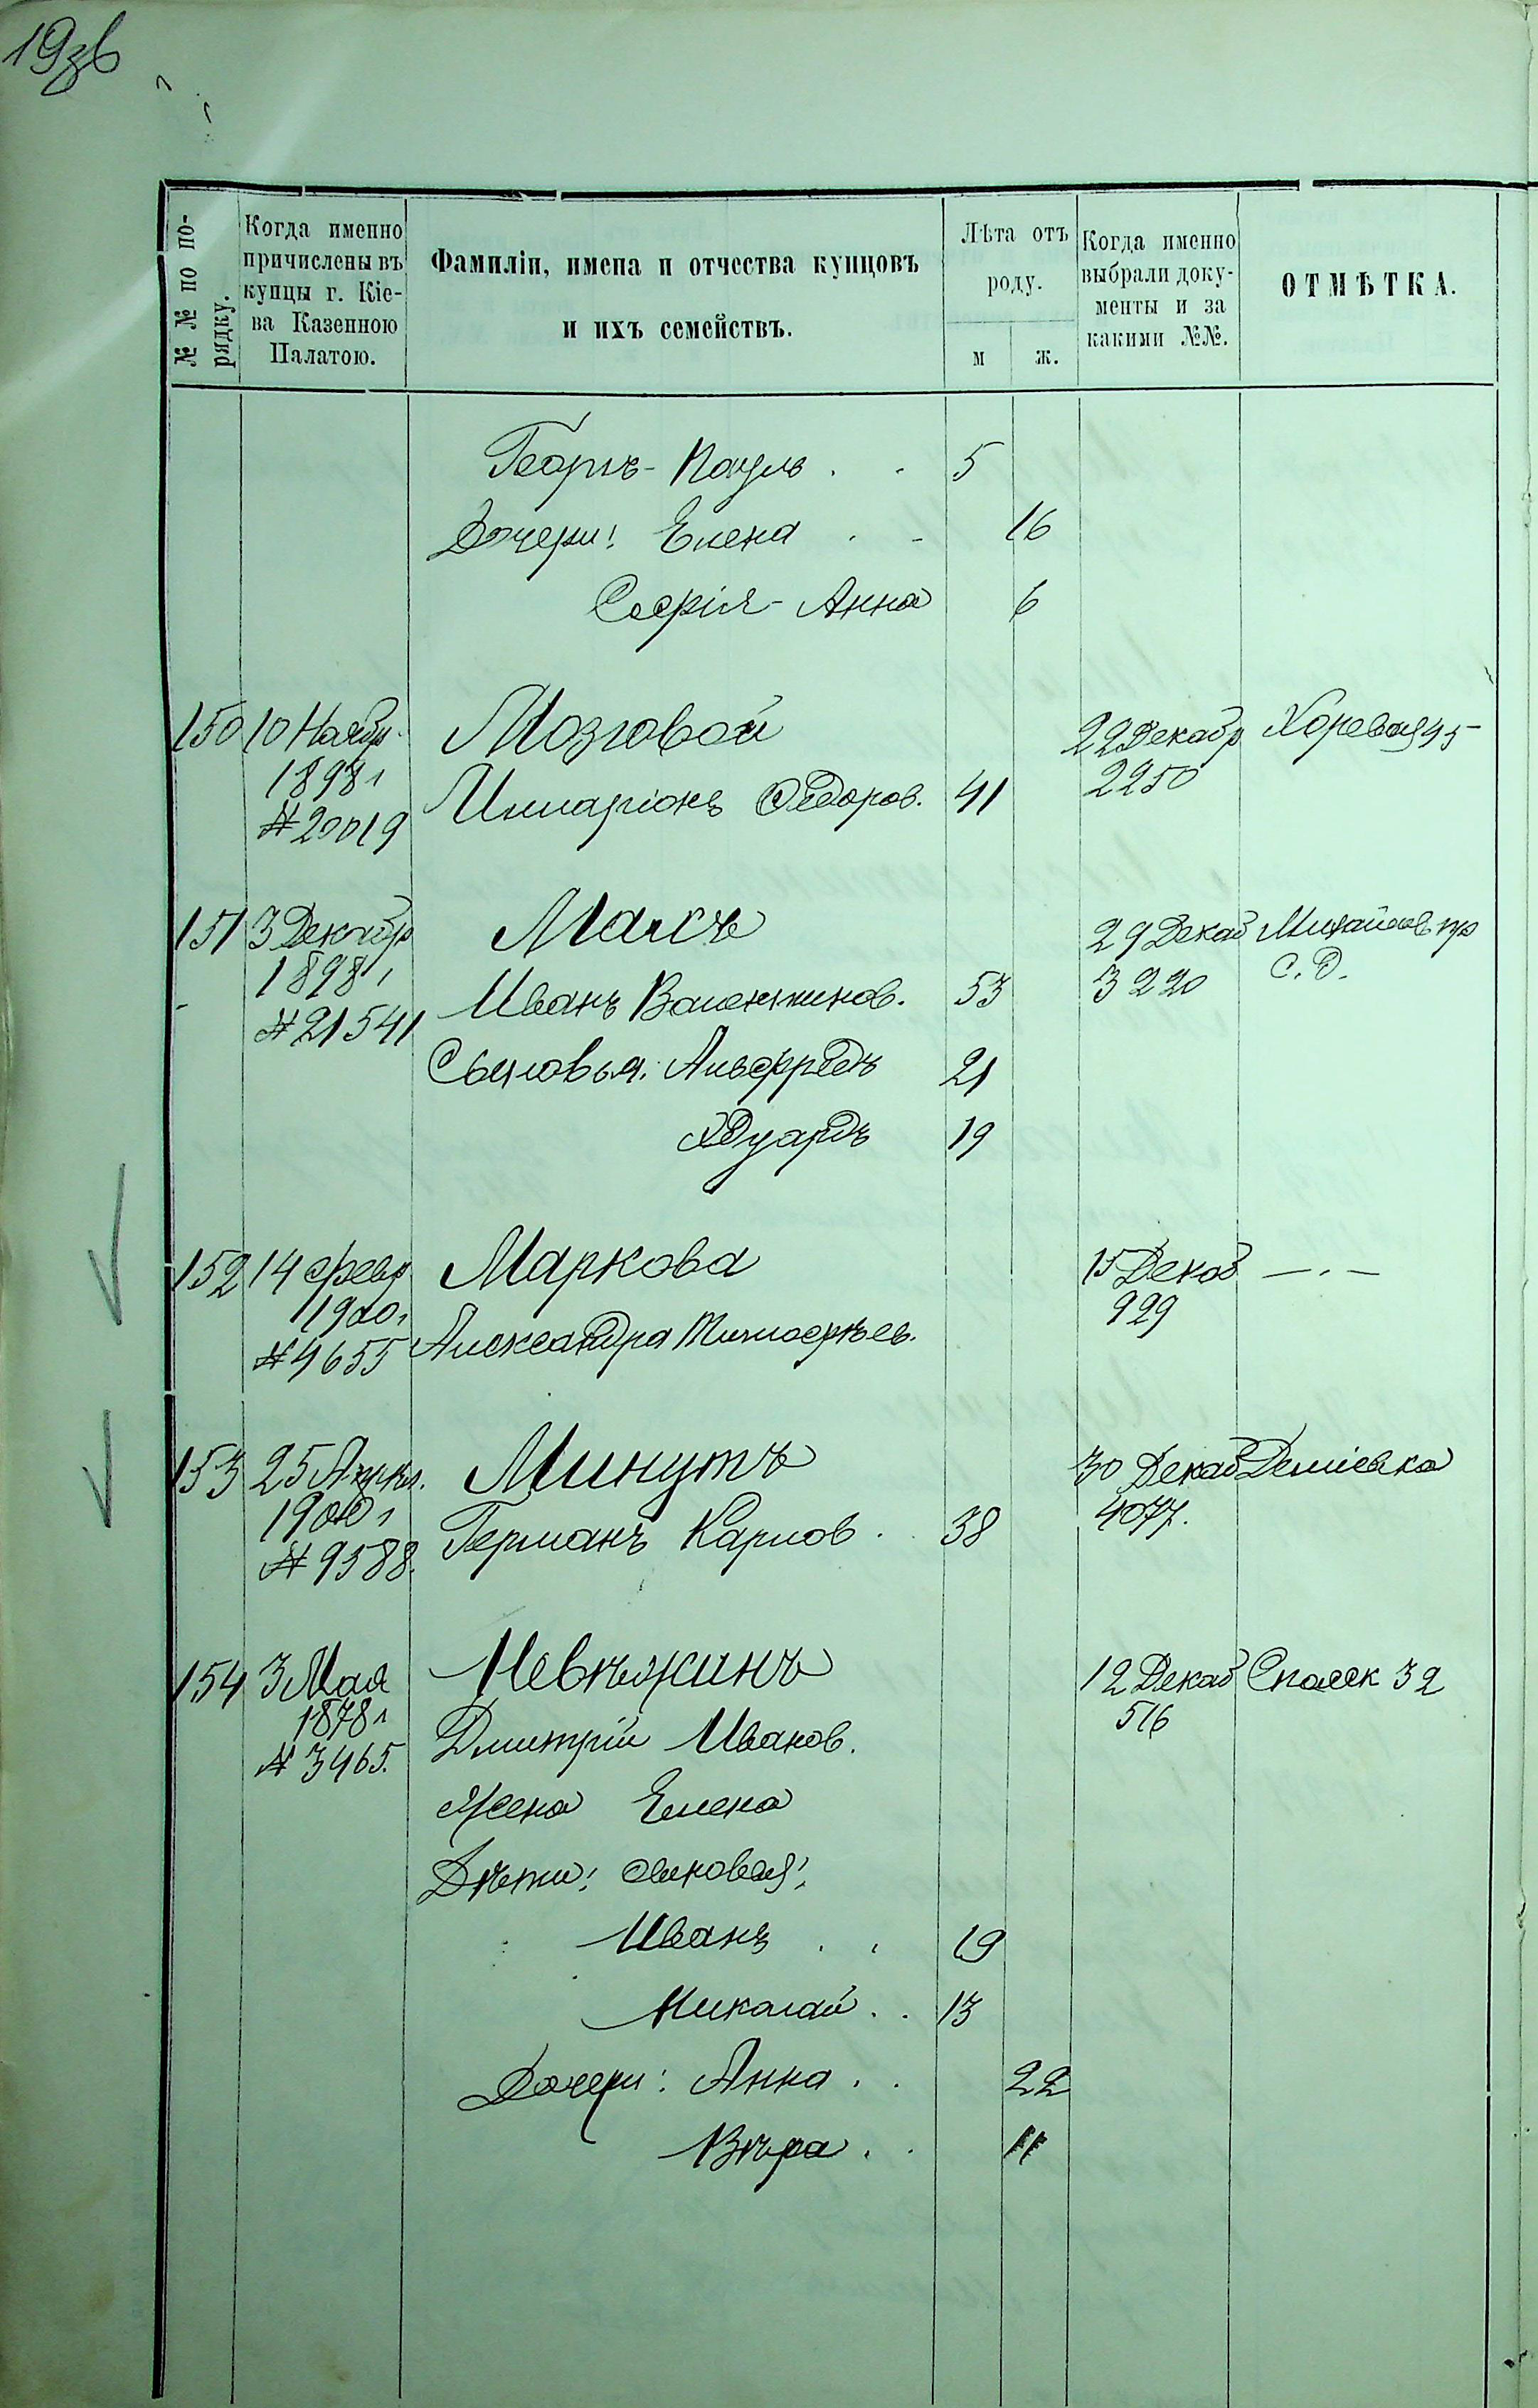 19зв
№ № по по-
рядку.
Когда именно
причислены въ
купцы г. Кіе-
ва Казенною
Палатою.
Фамиліи, имена и отчества купцовъ
и ихъ семействъ.
Лѣта отъ
роду.
м ж.
Когда именно
выбрали доку-
менты и за
какими №№.
ОТМѢТКА.
Георгъ-Пауль . . 5
Дочери: Елена . . 16
Софія-Анна 6
150 10 Ноябр. Мозговой 22 Декабр Хоревая 45
1898 г Илларіонъ Ѳедоров. 41 2250
№ 20019
151 3 Декабр Максъ 29 Декаб Михайлов пр
1898 г Иванъ Валентинов. 53 3220 С. д.
№ 21541
Сыновья: Альфредъ 21
Эдуардъ 19
152 14 февр Маркова 15 Декаб — . —
1900 г Александра Тимофѣев. 929
№ 4655
153 25 Апрѣл. Минутъ 30 Декаб Деміевка
1900 г Германъ Карлов . . 38 4077.
№ 9588.
154 3 Мая Невѣжинъ 12 Декаб Спасск 32
1878 г Дмитрій Иванов. 516
№ 3465.
Жена Елена
Дѣти: сыновья:
Иванъ . . 19
Николай . . 13
Дочери: Анна . . 22
Вѣра . . 11